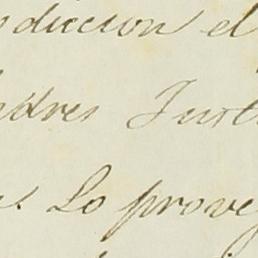 diccion el
dres Just
s. Lo prove